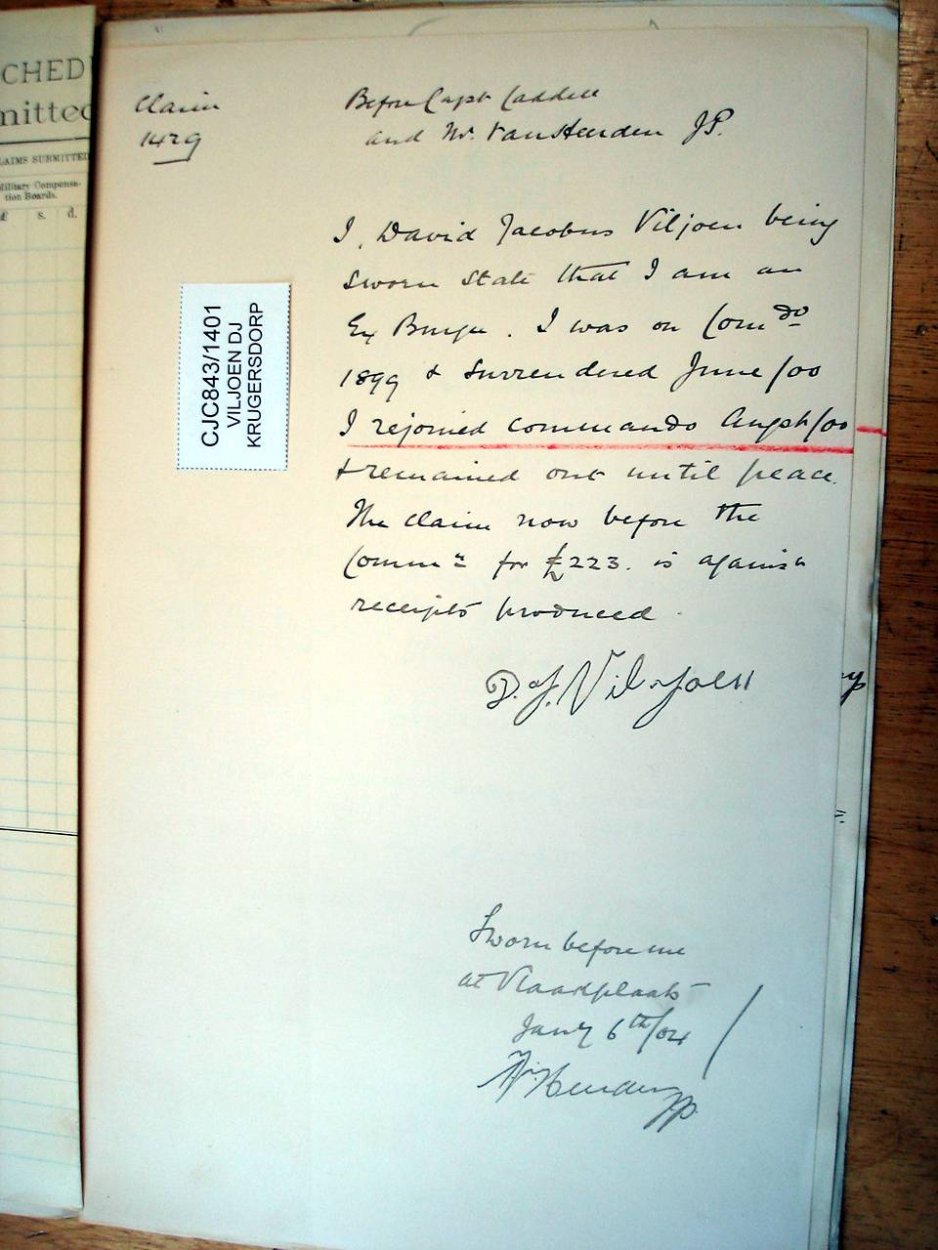 CHED
mitted
LAIMS SUBMITTED
Military Compensa-
tion Boards.
£ s. d.
Claim
1429
Before Capt Caddell
and Mr. Van Heerden JP.
I, David Jacobus Viljoen being
sworn state that I am an
Ex Burger. I was on Com^do
1899 & surrendered June/00
I rejoined commando Augst/00
& remained out until peace.
The claim now before the
Comm^n for £223. is against
receipts produced.
D. J. Viljoen
CJC843/1401
VILJOEN DJ
KRUGERSDORP
Sworn before me
at
Jany 6th/04
JP.